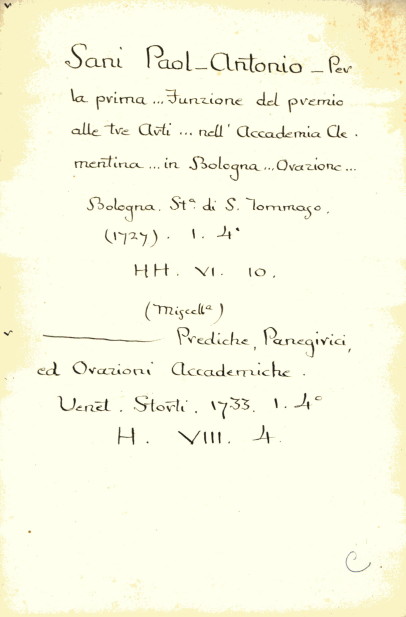 Sani Paol-Antonio - Per
la prima ... Funzione del premio
alle tre Arti ... nell' Accademia Cle-
mentina ... in Bologna ... Orazione ...
Bologna. Stª. di S. Tommaso.
(1727). 1. 4°
HH. VI. 10.
(Miscellª)
——— Prediche, Panegirici,
ed Orazioni Accademiche.
Venet. Storti. 1733. 1. 4°
H. VIII. 4.
C.